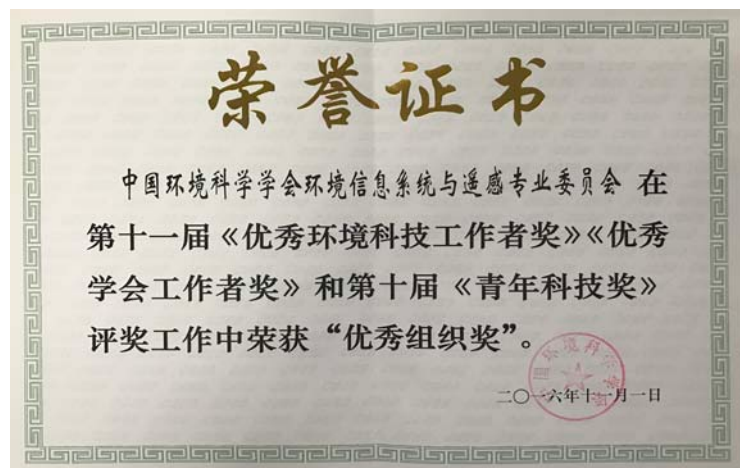 荣誉证书
中国环境科学学会环境信息系统与遥感专业委员会 在
第十一届《优秀环境科技工作者奖》《优秀
学会工作者奖》和第十届《青年科技奖》
评奖工作中荣获“优秀组织奖”。
中国环境科学学会
二〇一六年十一月一日